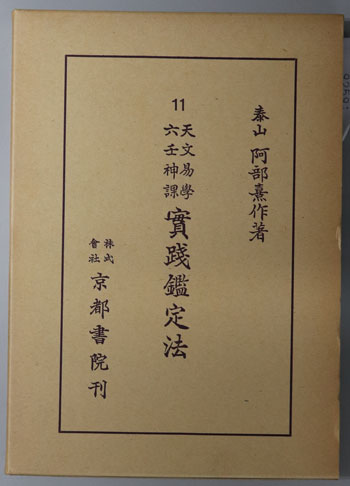 泰山 阿部熹作著
11
天文易學
六壬神課
實踐鑑定法
株式
會社
京都書院刊